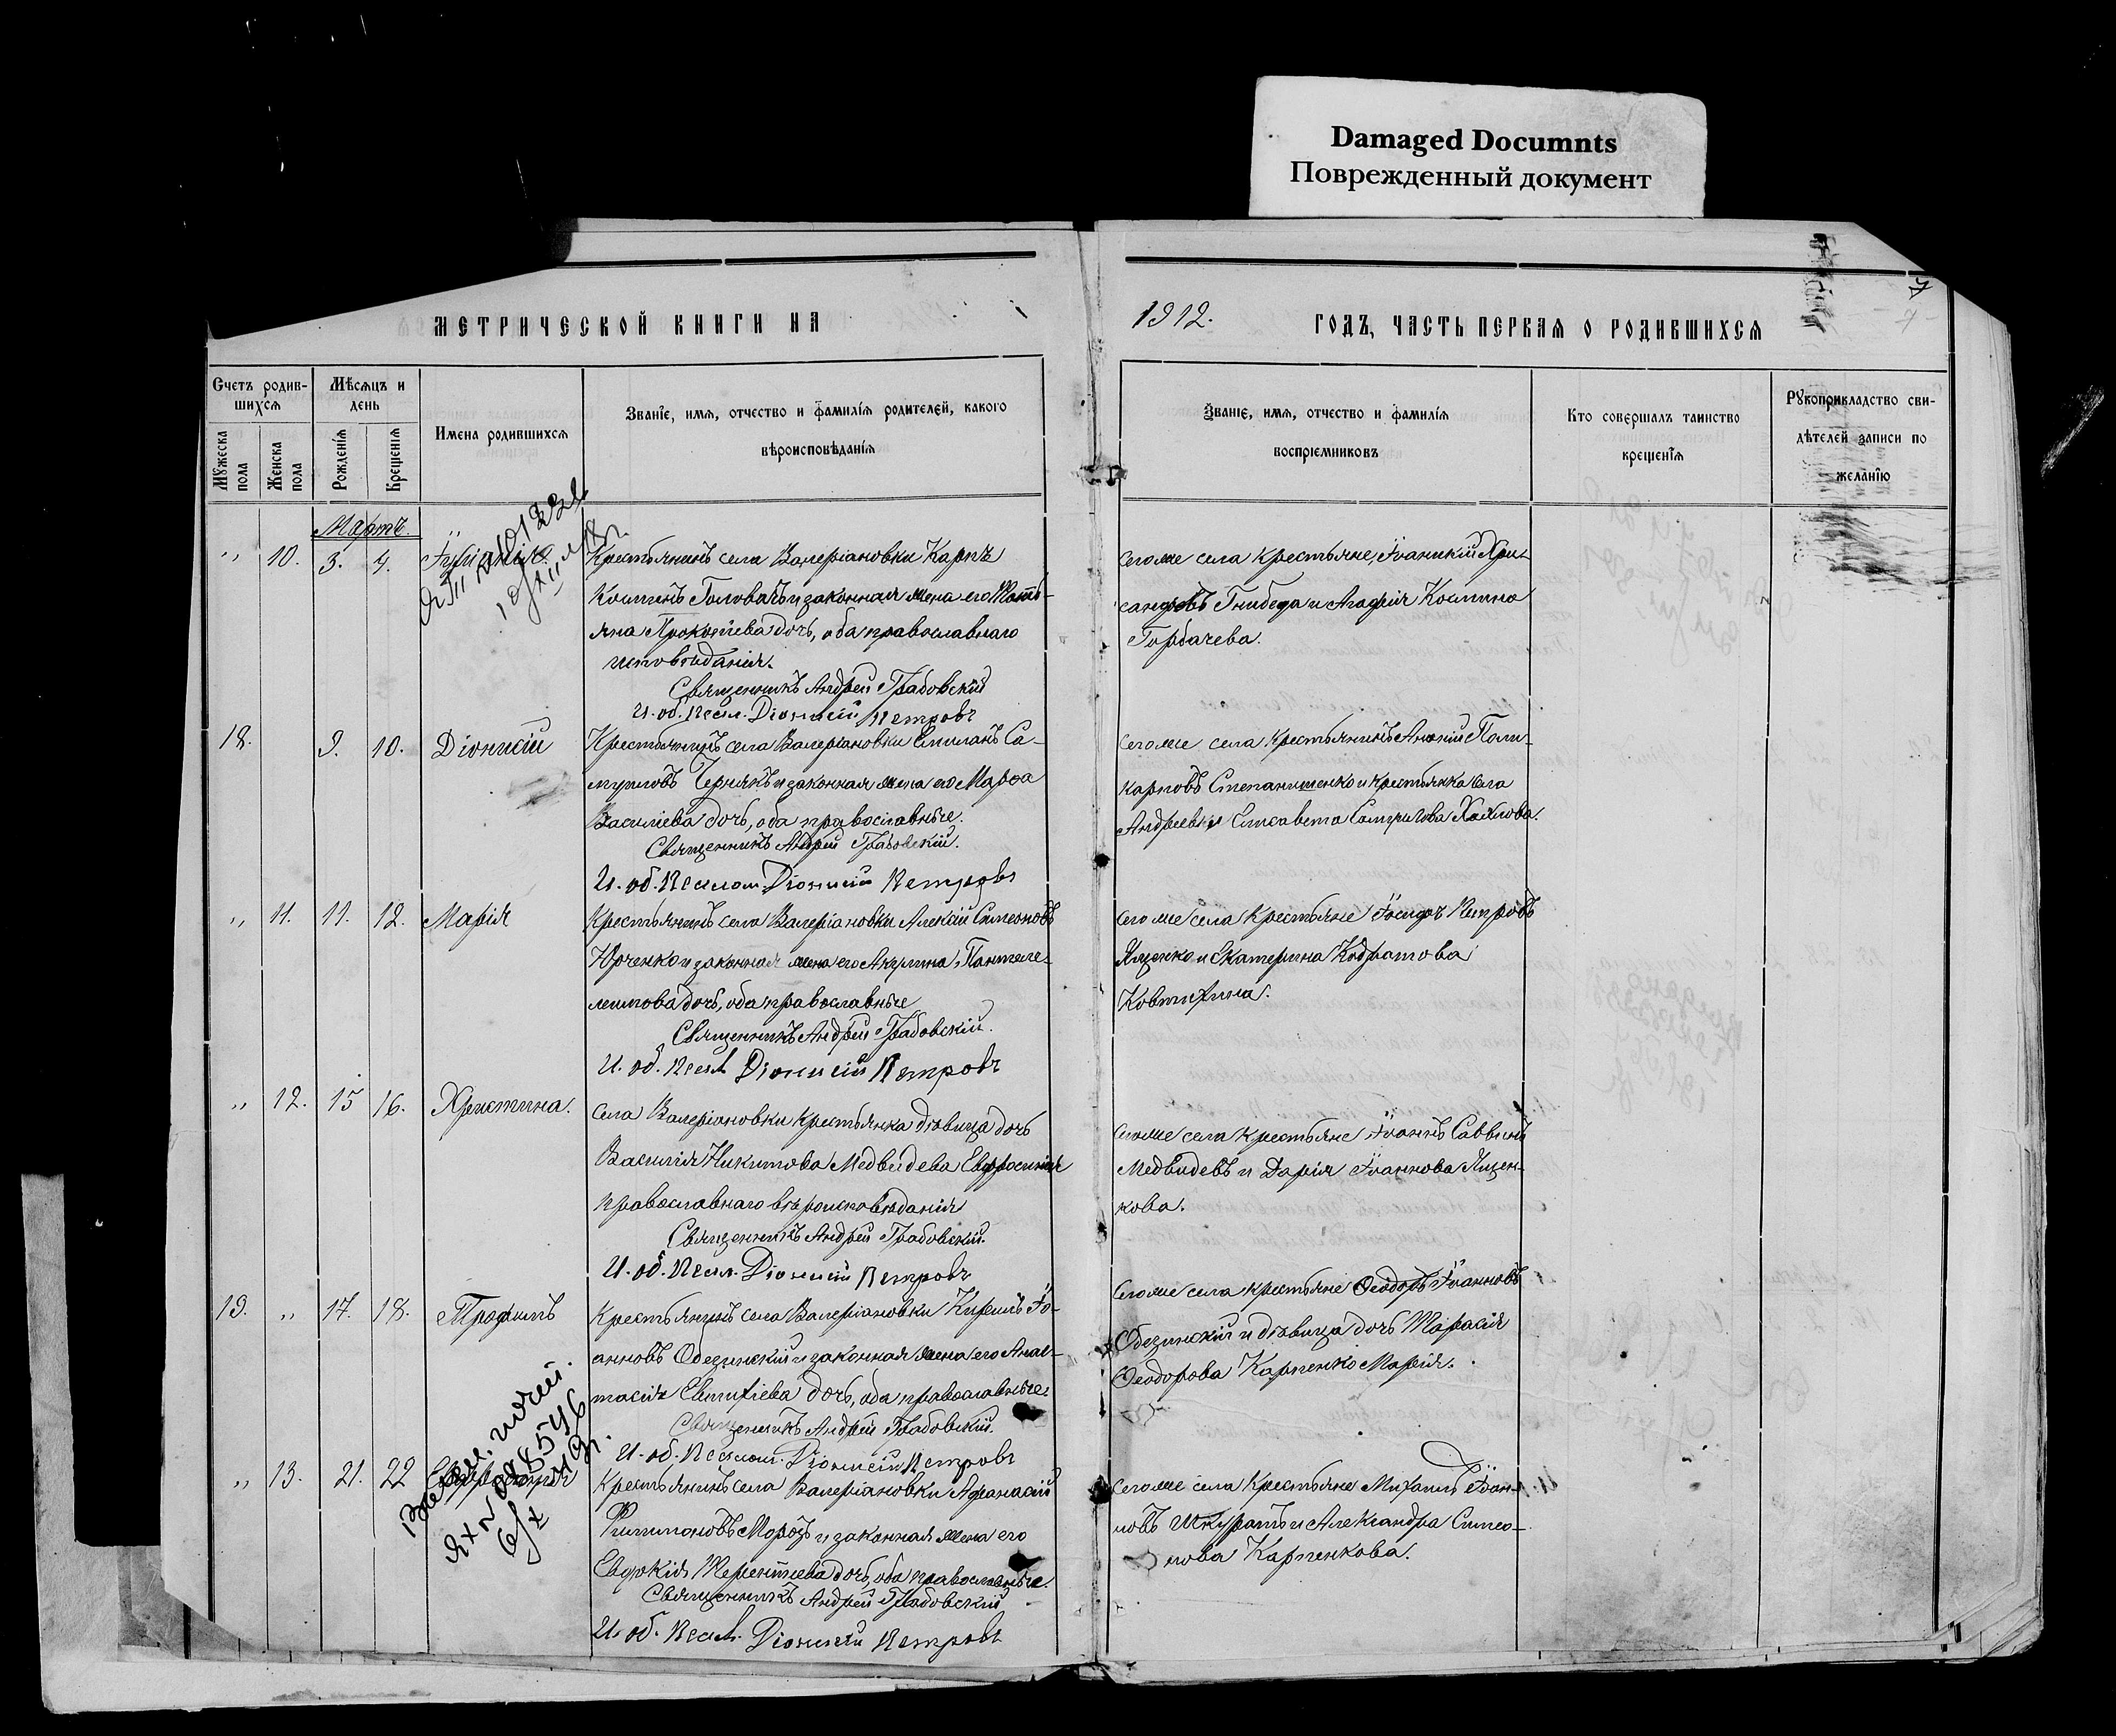 Damaged Documnts
Поврежденный документ
МЕТРИЧЕСКОЙ КНИГИ НА
1912.
ГОДЪ, ЧАСТЬ ПЕРВАЯ О РОДИВШИХСЯ
7
Счетъ родив-
шихся
Мѣсяцъ и
день
Мужеска
пола
Женска
пола
Рожденія
Крещенія
Имена родившихся
Званіе, имя, отчество и фамилія родителей, какого
вѣроисповѣданія
Званіе, имя, отчество и фамилія
воспріемниковъ
Кто совершалъ таинство
крещенія
Рукоприкладство сви-
дѣтелей записи по
желанію
Мартъ.
„ 10. 3. 4.
Крестьянинъ села Валеріановки Карпъ
Косминъ Головачъ и законная жена его Тать-
яна Прокопіева дочь, оба православнаго
исповѣданія.
Священникъ Андрей Грабовскій
И. об. Псал. Діонисій Петровъ
Тогоже села крестьяне, Іоаникій Хри-
санфовъ Гнибеда и Агафія Космина
Горбачева.
18. 9. 10. Діонисій
Крестьянинъ села Валеріановки Емиліанъ Са-
муиловъ Чернякъ и законная жена его Марѳа
Василіева дочь, оба православные.
Священникъ Андрей Грабовскій.
И. об. Псалом. Діонисій Петровъ
Тогоже села крестьянинъ Поли-
карповъ Степаниженко и крестьянка села
Андреевки Елисавета
„ 11. 11. 12. Марія
Крестьянинъ села Валеріановки Алексій Симеоновъ
Юрченко и законная жена его Акулина Пантеле-
имонова дочь, оба православные
Священникъ Андрей Грабовскій.
И. об. Псал. Діонисій Петровъ
Тогоже села крестьяне Іосифъ Петровъ
Яценко и Екатерина Кодратова
Ковтухина.
„ 12. 15 16. Христина.
Села Валеріановки крестьянка дѣвица дочь
Василія Никитова Медведева Евфросинія
православнаго вѣроисповѣданія
Священникъ Андрей Грабовскій.
И. об. Псал. Діонисій Петровъ
Тогоже села крестьяне Іоаннъ Саввинъ
Медведевъ и Дарія Іоаннова Яцен-
кова.
19. „ 17. 18. Трофимъ
Крестьянинъ села Валеріановки Кириллъ Іо-
анновъ Обезинскій и законная жена его Анас-
тасія Евтихіева дочь, оба православные.
Священникъ Андрей Грабовскій.
И. об. Псалом. Діонисій Петровъ
Тогоже села крестьяне Ѳеодоръ Іоанновъ
Обезинскій и дѣвица дочь Тарасія
Ѳеодорова Карпенко Марія.
„ 13. 21. 22 Евфросинія
Крестьянинъ села Валеріановки Афанасій
Филимоновъ Морозъ и законная жена его
Евдокія Терентіева дочь, оба православные.
Священникъ Андрей Грабовскій
И. об. Псал. Діонисій Петровъ
Тогоже села крестьяне Михаилъ Іоан-
новъ Шкуратъ и Александра Симео-
нова Карпенкова.